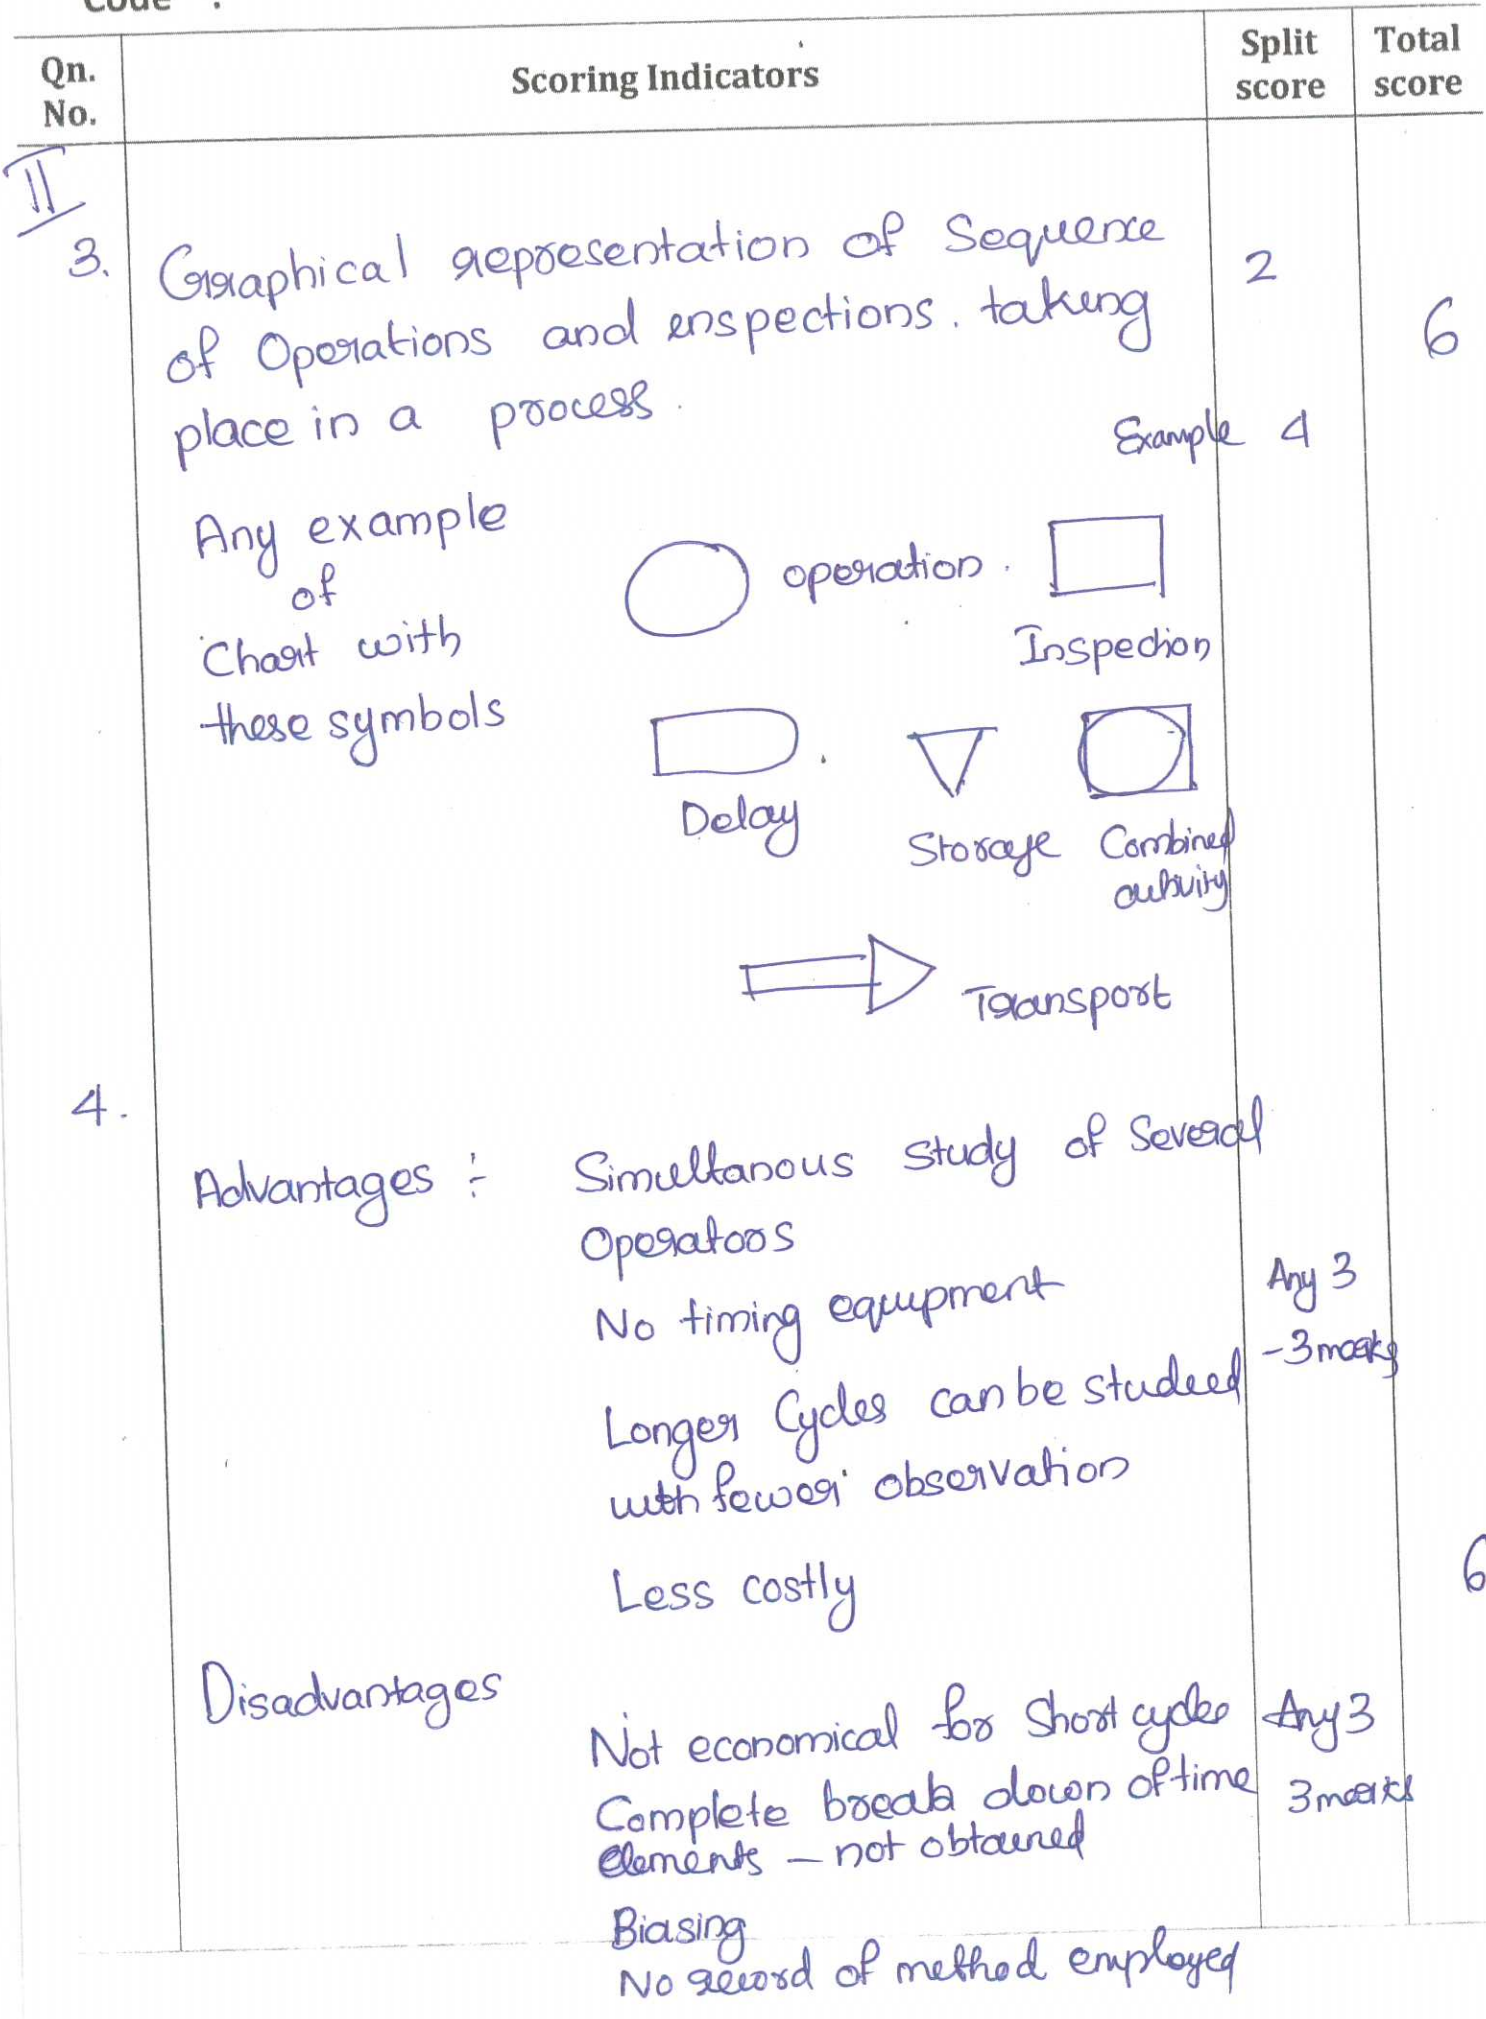 Code :
Qn. No.
Scoring Indicators
Split score
Total score
II
3. Graphical representation of Sequence 2
of Operations and inspections. taking 6
place in a process.
Example 4
Any example
of
Chart with
these symbols
operation.
Inspection
Delay
Storage
Combined
activity
Transport
4.
Advantages :- Simultanous study of Several
Operators
No timing equipment Any 3
- 3 marks
Longer Cycles can be studied
with fewer observation
Less costly 6
Disadvantages
Not economical for Short cycles Any 3
Complete break down of time 3 marks
elements - not obtained
Biasing
No record of method employed